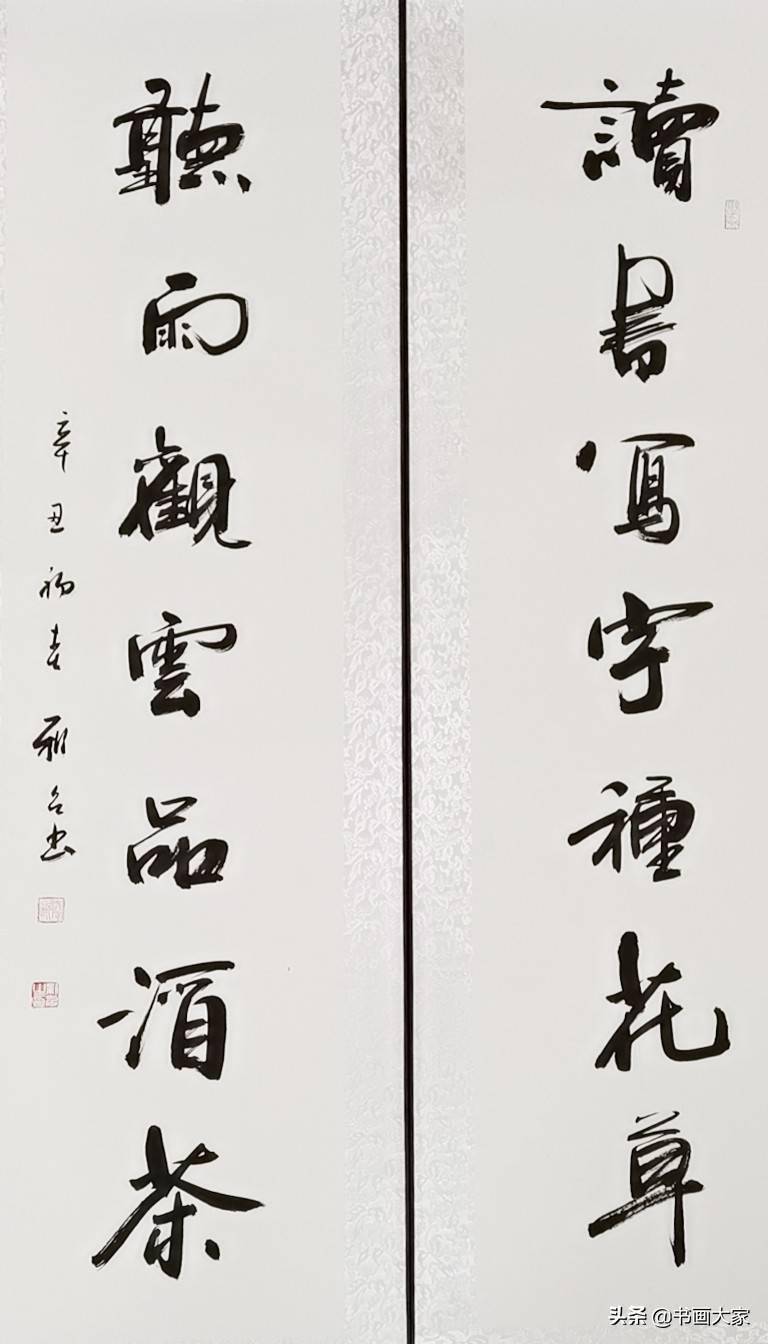 讀書寫字種花草
聽雨觀雲品酒茶
辛丑初春雅名書
头条 @书画大家